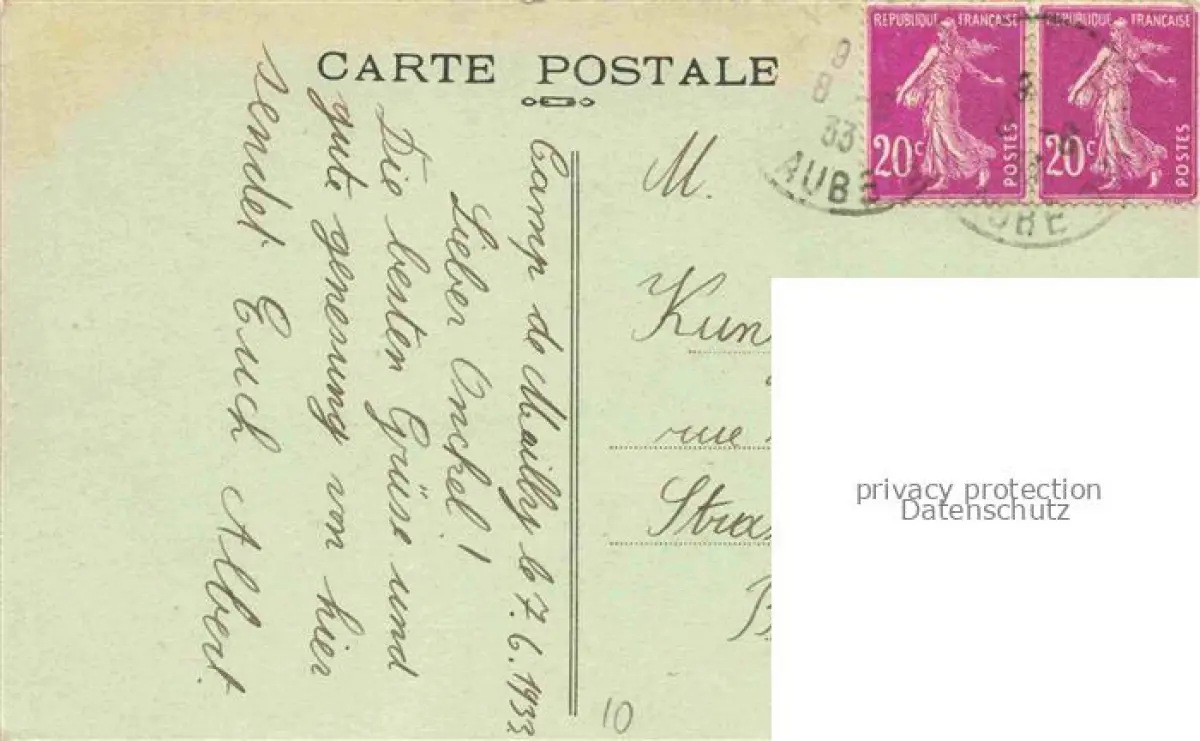 CARTE POSTALE
Camp de Mailly le 7.6.1933
Lieber Onckel!
Die besten Grüse und
gute genesung von hier
sendet Euch Albert.
M.
Kun
rue
Stras
B
10
REPUBLIQUE FRANÇAISE
20c
POSTES
REPUBLIQUE FRANÇAISE
20c
POSTES
9
8
33
AUBE
AUBE
privacy protection
Datenschutz